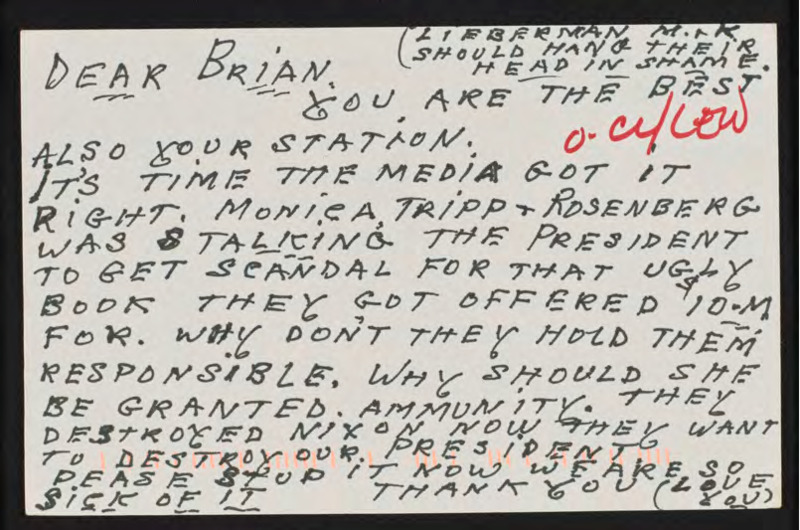 (LIEBERMAN M.+K.
SHOULD HANG THEIR
HEAD IN SHAME.
DEAR BRIAN,
YOU ARE THE BEST
ALSO YOUR STATION.
IT'S TIME THE MEDIA GOT IT
RIGHT. MONICA, TRIPP + ROSENBERG
WAS STALKING THE PRESIDENT
TO GET SCANDAL FOR THAT UGLY
BOOK THEY GOT OFFERED $10-M
FOR. WHY DON'T THEY HOLD THEM
RESPONSIBLE. WHY SHOULD SHE
BE GRANTED. AMMUNITY. THEY
DESTROYED NIXON NOW THEY WANT
TO DESTROY OUR PRESIDENT
PEASE STOP IT NOW WE ARE SO
SICK OF IT THANK YOU (LOVE
YOU)